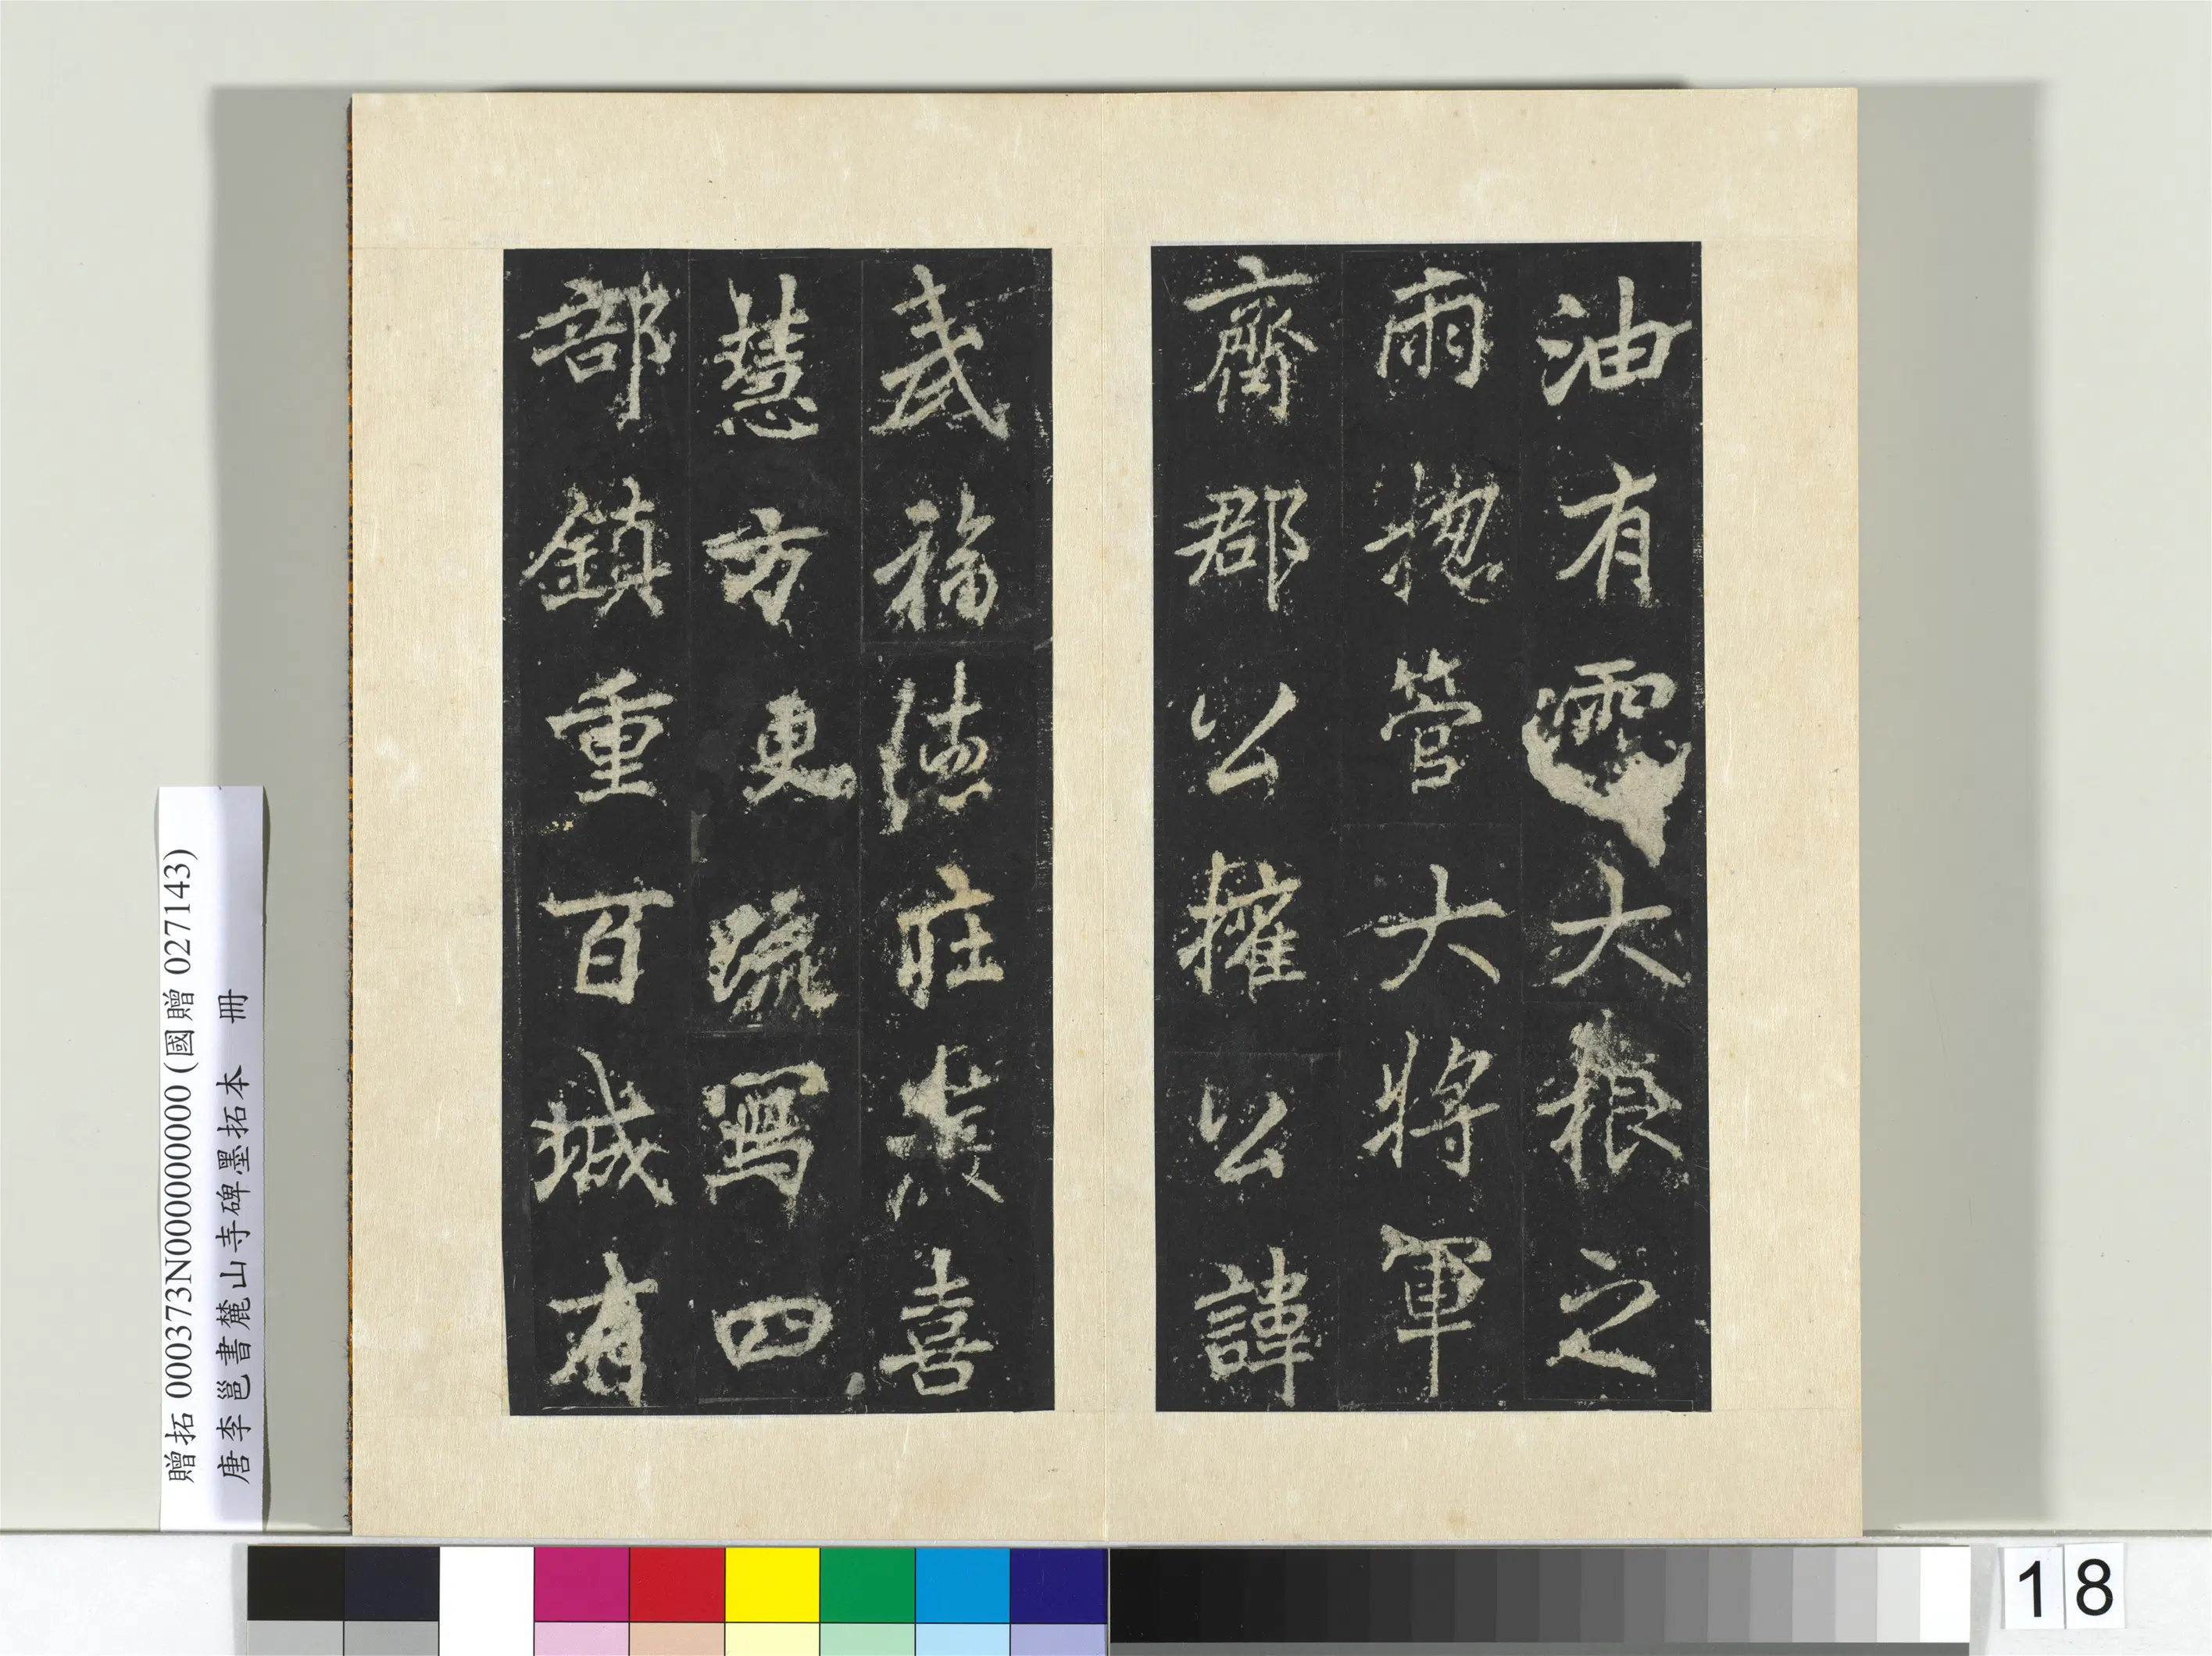 油有靈大根之
雨揔管大將軍
齊郡公權公諱
武福德莊嚴喜
慧方便疏寫四
部鎮重百城有
贈拓 000373N000000000 (國贈 027143)
唐李邕書麓山寺碑墨拓本 冊
18